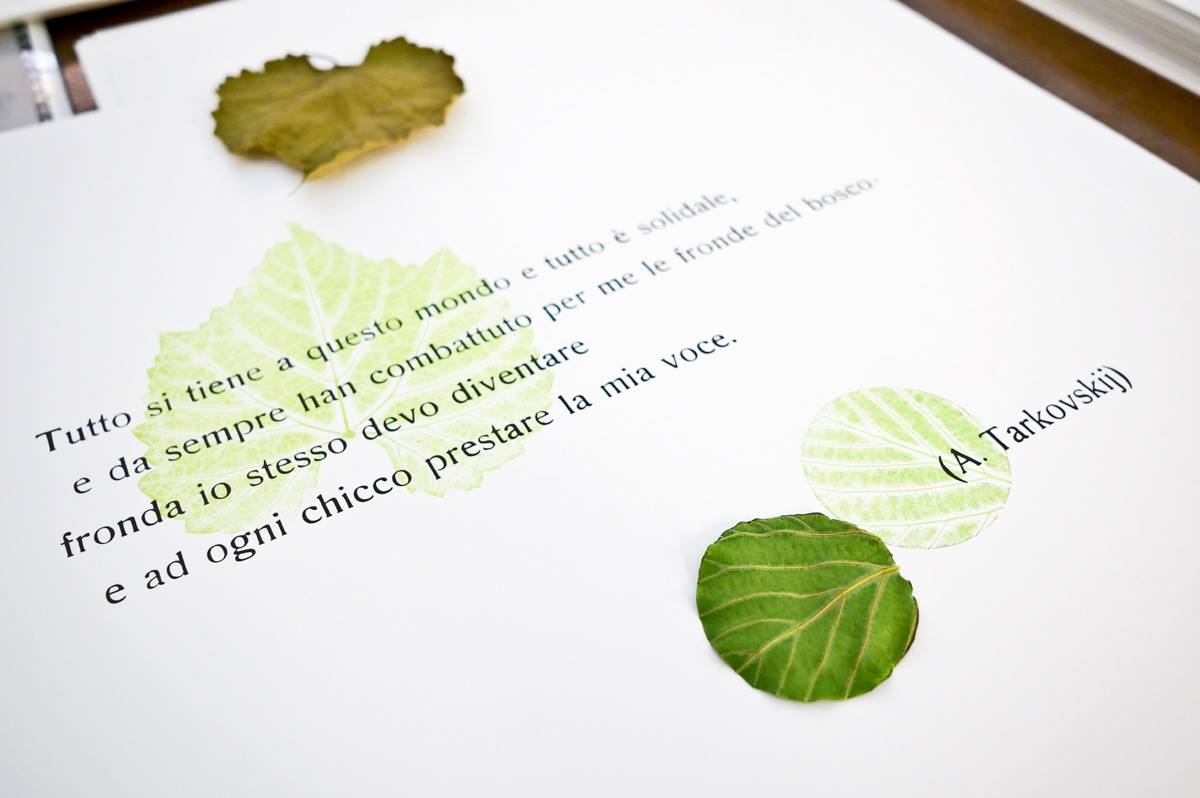 Tutto si tiene a questo mondo e tutto è solidale,
e da sempre han combattuto per me le fronde del bosco-
fronda io stesso devo diventare
e ad ogni chicco prestare la mia voce.
(A. Tarkovskij)